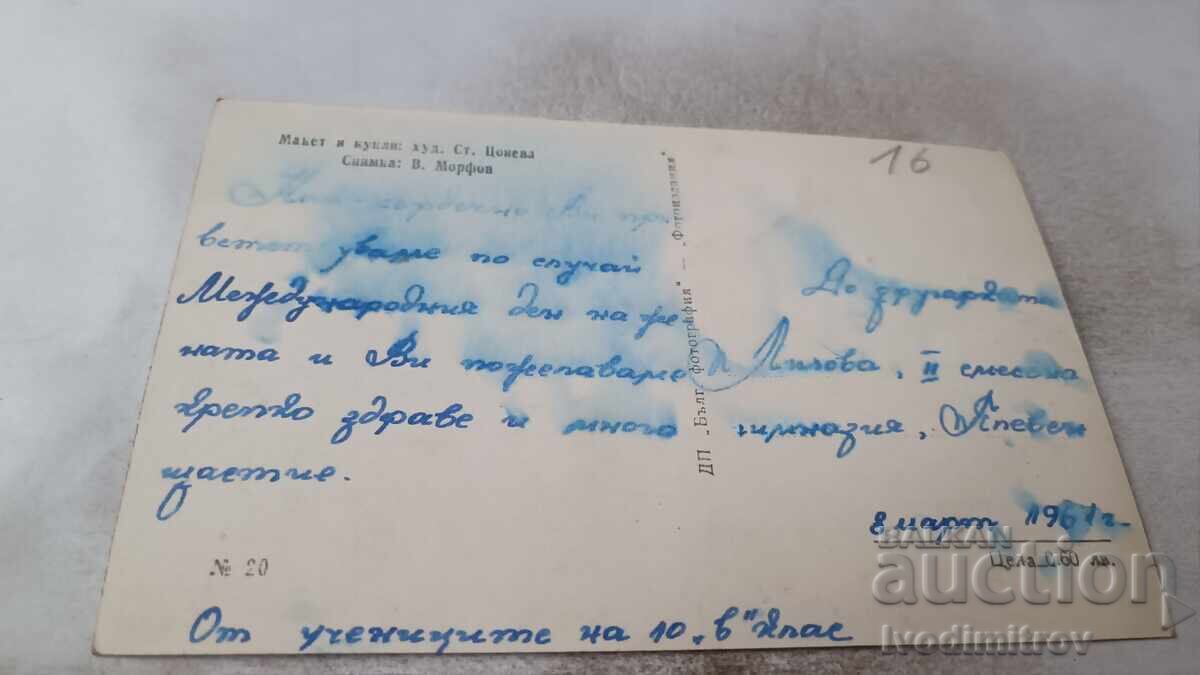 Макет и кукли: худ. Ст. Цонева
Снимка: В. Морфов
16
Най-сърдечно Ви при
ветствуваме по случай
Международния ден на же
ната и Ви пожелаваме
крепко здраве и много
щастие.
№ 20
ДП „Бълг. фотография“ — „Фотоиздания“
До другарката
Лилова, II смесена
гимназия, Плевен
8 март 1961 г.
Цена 0.60 лв.
От учениците на 10 „в“ клас
BALKAN
auction
Ivodimitrov